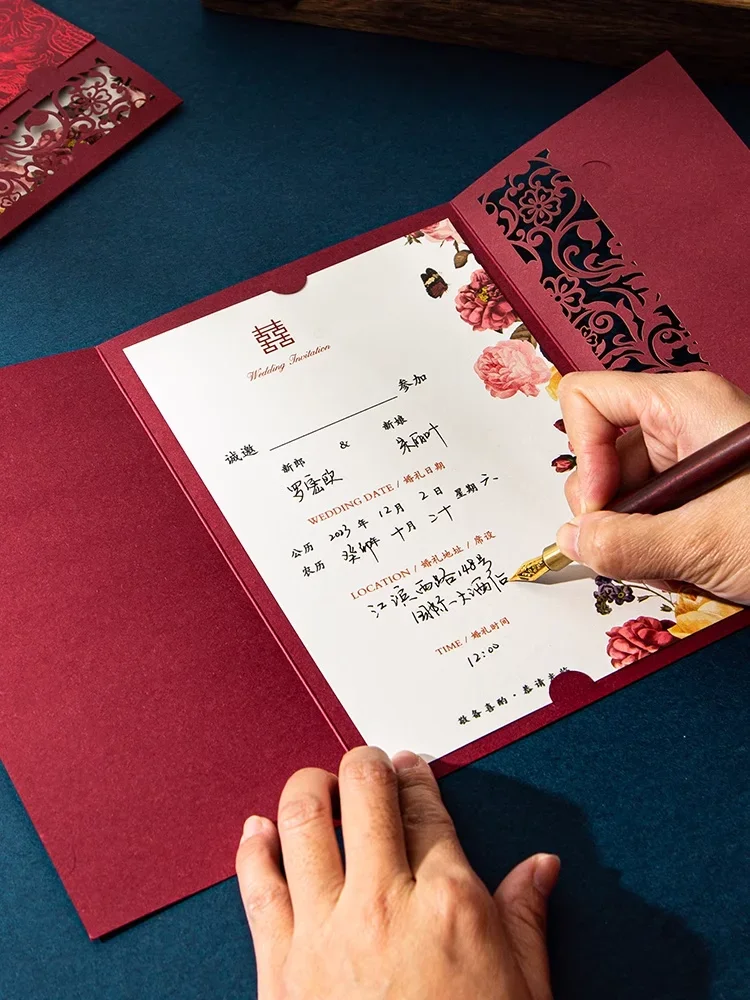 囍
Wedding Invitation
诚邀 参加
新郎 & 新娘
罗 欧 朱丽叶
WEDDING DATE / 婚礼日期
公历 2023 年 12 月 2 日 星期 六
农历 癸卯年 十月 二十
LOCATION / 婚礼地址 / 席设
江滨西路148号
国际大酒店
TIME / 婚礼时间
12:00
敬备喜酌·恭请光临